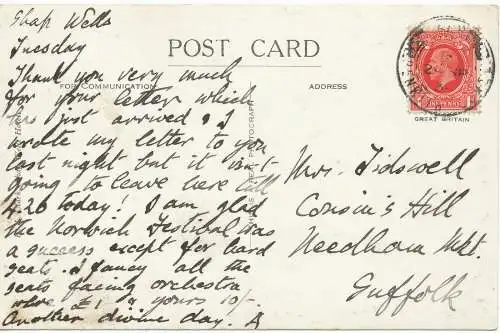 Shap Wells
Tuesday
Thank you very much
for your letter which
has just arrived & I
wrote my letter to you
last night but it isn't
going to leave here till
4.26 today! I am glad
the Norwich Festival was
a success except for hard
seats. I fancy all the
seats facing orchestra
were £1 & yours 10/-
Another divine day. B
POST CARD
FOR COMMUNICATION
ADDRESS
PHOTOGRAPH
GREAT BRITAIN
Mrs. Tidswell
Cousin's Hill
Needham Mkt.
Suffolk